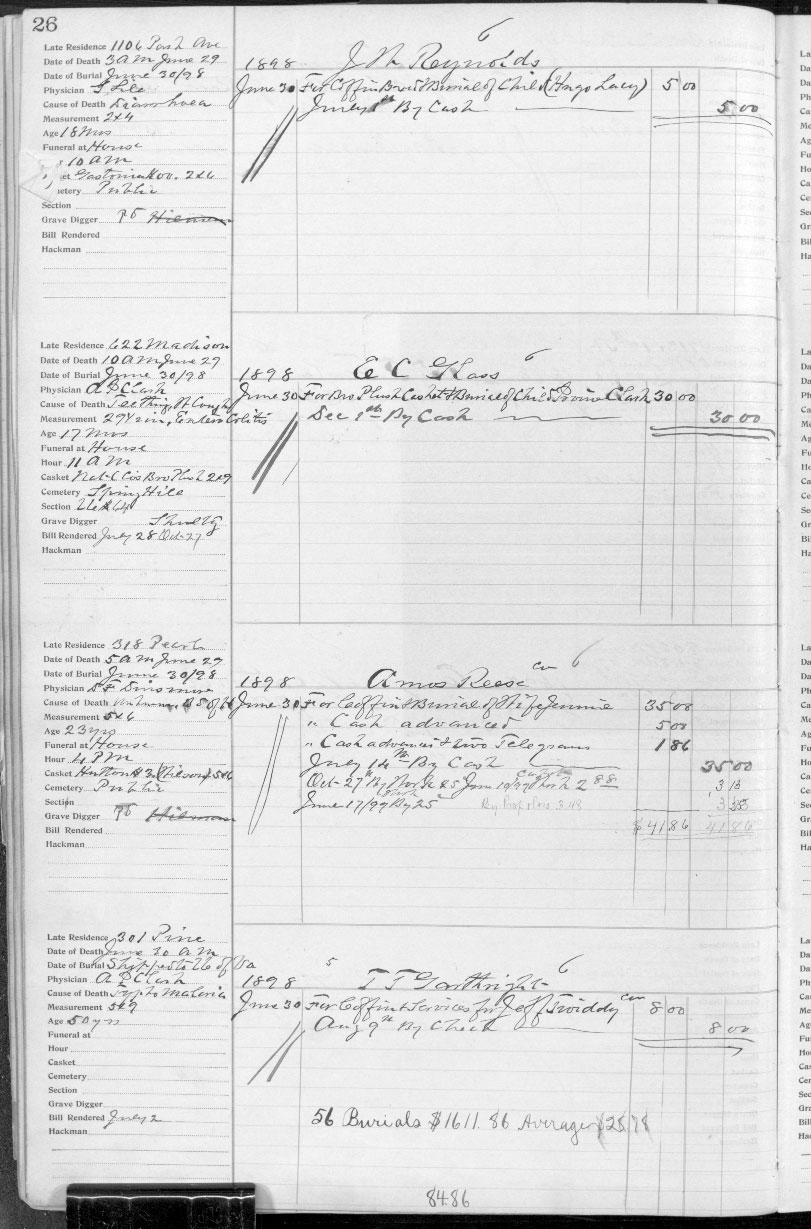 26
Late Residence 1106 Park Ave
Date of Death 3 am June 29
Date of Burial June 30/98
Physician Lile
Cause of Death Diarrhoea
Measurement 2x4
Age 18 Mos
Funeral at House
10 am
et Gastonia 2x6
etery Public
Section
Grave Digger Pd
Bill Rendered
Hackman
6
J W Reynolds
1898
June 30 For Coffin Box & Burial of Child (Hugo Lacy) 5 00
By Cash 5 00
Late Residence 622 Madison
Date of Death 10 am June 29
Date of Burial June 30/98
Physician A P Clark
Cause of Death Teething Colitis
Measurement
Age 17 Mos
Funeral at House
Hour 11 am
Casket Plush 2x9
Cemetery Spring Hill
Section
Grave Digger
Bill Rendered July 28 Oct 27
Hackman
6
E C Glass
1898
June 30 For Bro Plush Casket & Burial of Child Clark 30 00
Dec By Cash 30 00
Late Residence 318 Pearl
Date of Death 5 am June 29
Date of Burial June 30/98
Physician Dinsmore
Cause of Death Unknown
Measurement 5x6
Age 23 yrs
Funeral at House
Hour 4 PM
Casket 5x6
Cemetery Public
Section
Grave Digger Pd
Bill Rendered
Hackman
col 6
Amos Reese
1898
June 30 For Coffin & Burial of Wife Jennie 35 00
" Cash advanced 5 00
" Cash advanced two Telegrams 1 86
July 14th By Cash 35 00
Oct 27th By Work
June 17/99 By 25
$41.86 41.86
Late Residence 301 Pine
Date of Death June 30 am
Date of Burial Shipped to U of Va
Physician A P Clark
Cause of Death Typho Malaria
Measurement 5x9
Age 50 yrs
Funeral at
Hour
Casket
Cemetery
Section
Grave Digger
Bill Rendered July 2
Hackman
5 6
T J Garthright
1898
June 30 For Coffin & Services for Jeff Twiddy col 8 00
Aug 9th By Check 8 00
56 Burials $1611.86 Average $28.78
8486